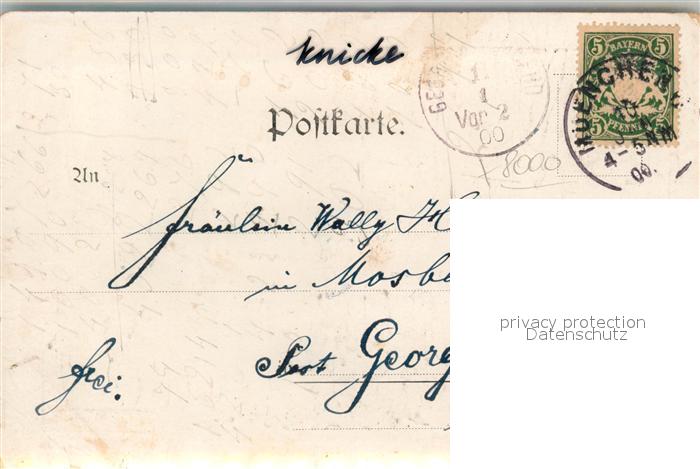 knicke
5 BAYERN 5
5 PFENNIG 5
MUENCHEN
4-5NM
00.
GEORG
1
1
Vor 2
00
Postkarte.
8000
An
Fräulein Wally H
in Mosb
Post Georg
frei.
privacy protection
Datenschutz